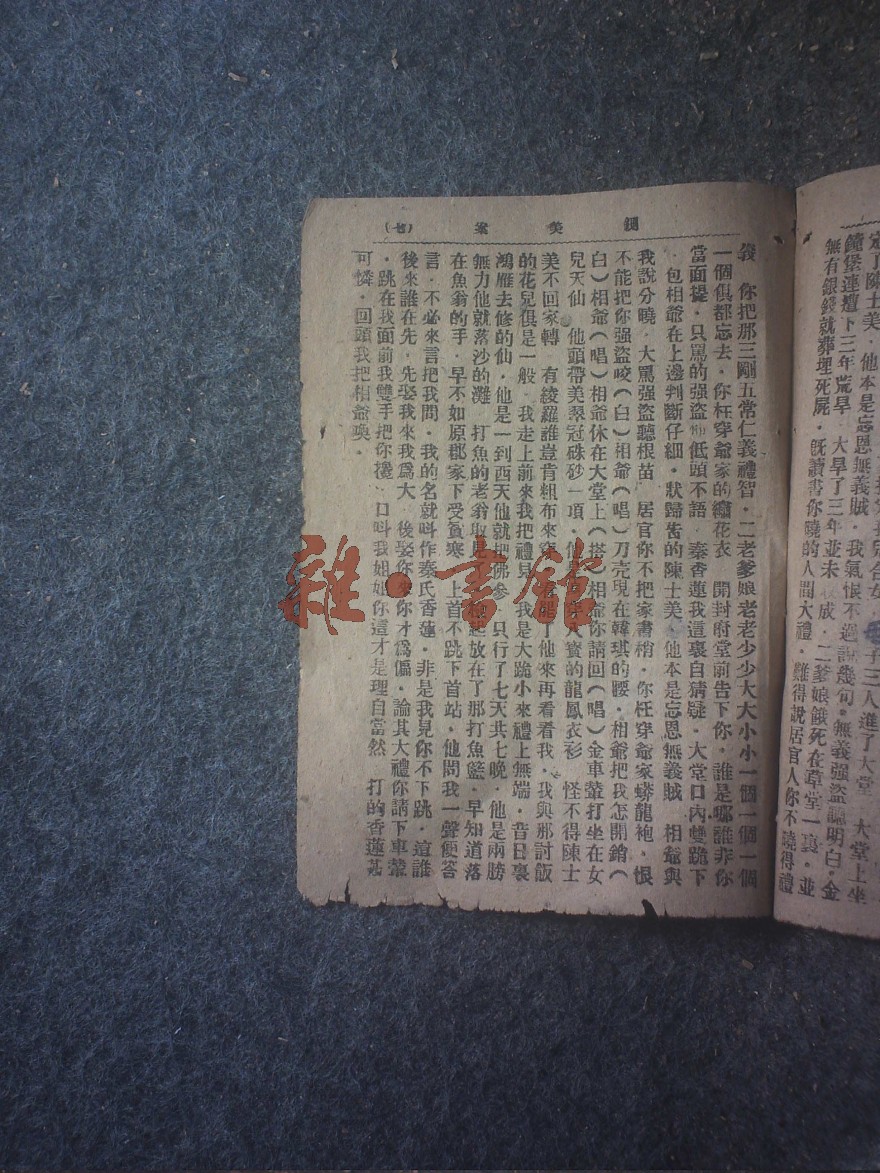 定了陳士美．他本是忘恩無義賊．我氣恨不過說幾句．無義强盜聽明白．金
鐘堡連遭下三年荒旱．大旱了三年並未收成．二爹娘餓死在草堂一裏．並
無有銀錢就葬埋死屍．既讀書你曉的人間大禮．難得說居官人你不曉得禮
鍘美案（七）
義．你把那三剛五常仁義禮智．二老爹娘老老少少大大小小一個一個一個
一個俱都忘去．你枉穿爺家的繡花衣．開封府堂前告下你．誰是哪誰非你
當面提．只罵的强盜他低頭不語．秦香蓮我這裏自猜疑．大堂口內雙跪下
．包相爺在上邊判斷仔細．狀歸告的陳士美．他本是忘恩無義賊．相爺與
我說分曉．大罵强盜聽根苗．居官你不把家書梢．你枉穿爺家蟒龍袍．恨
不能把你强盜咬（白）相爺（唱）刀壳現在韓琪的腰．相爺把我怎開銷（
白）相爺（唱）相爺休在大堂上（搭）相爺你請回（唱）金車輦打坐在女
兒天仙．他頭帶美翠冠硃砂一項．他身穿八寶的龍鳳衣衫．怪不得陳士
美不回家轉．有綾羅誰豈肯粗布來穿．他來再看看我．我與那討飯
的花兒俱是一般．我走上前來我把禮見．我是大跪小來禮上無端．昔日裏
鴻雁去修的仙．他是一到西天他就把佛參．只行了七天共七晚．他是兩膀
無力他就落沙的灘．打魚的老翁取是了放在了那打魚籃．早知道落
在魚翁的手．早不如原郡家下受貧寒．上首不跳下首站．他問我一聲便答
言．不必來言把我問．我的名就呌作秦氏香蓮．非是我見你不下跳．這誰
後來誰在先．先娶我來我爲大．後娶你來你才爲偏．論其大禮你請下車輦
．跳在我面前我雙手把你攙．口呌我姐姐你這才是理自當然．打的香蓮甚
可憐．回頭我把相爺喚．
雜·書館